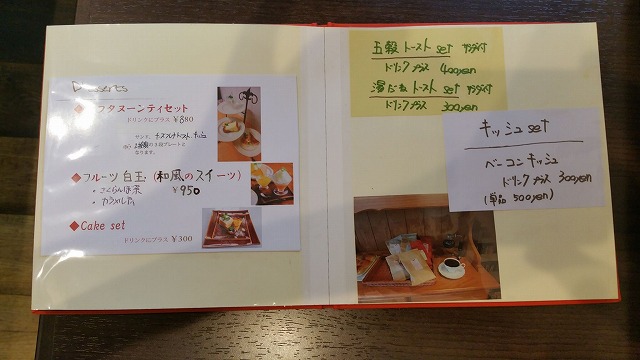 Desserts
フタヌーンティセット
ドリンクにプラス ￥880
サンド、チーズフレンチトースト、キッシュ
の3段プレートと
なります。
◆フルーツ白玉(和風のスイーツ)
・さくらんぼ茶 ￥950
◆Cake set
ドリンクにプラス ￥300
五穀トースト set サラダ付
ドリンクプラス 400yen
湯だねトースト set サラダ付
ドリンクプラス 300yen
キッシュ set
ベーコンキッシュ
ドリンクプラス 300yen
(単品 500yen)